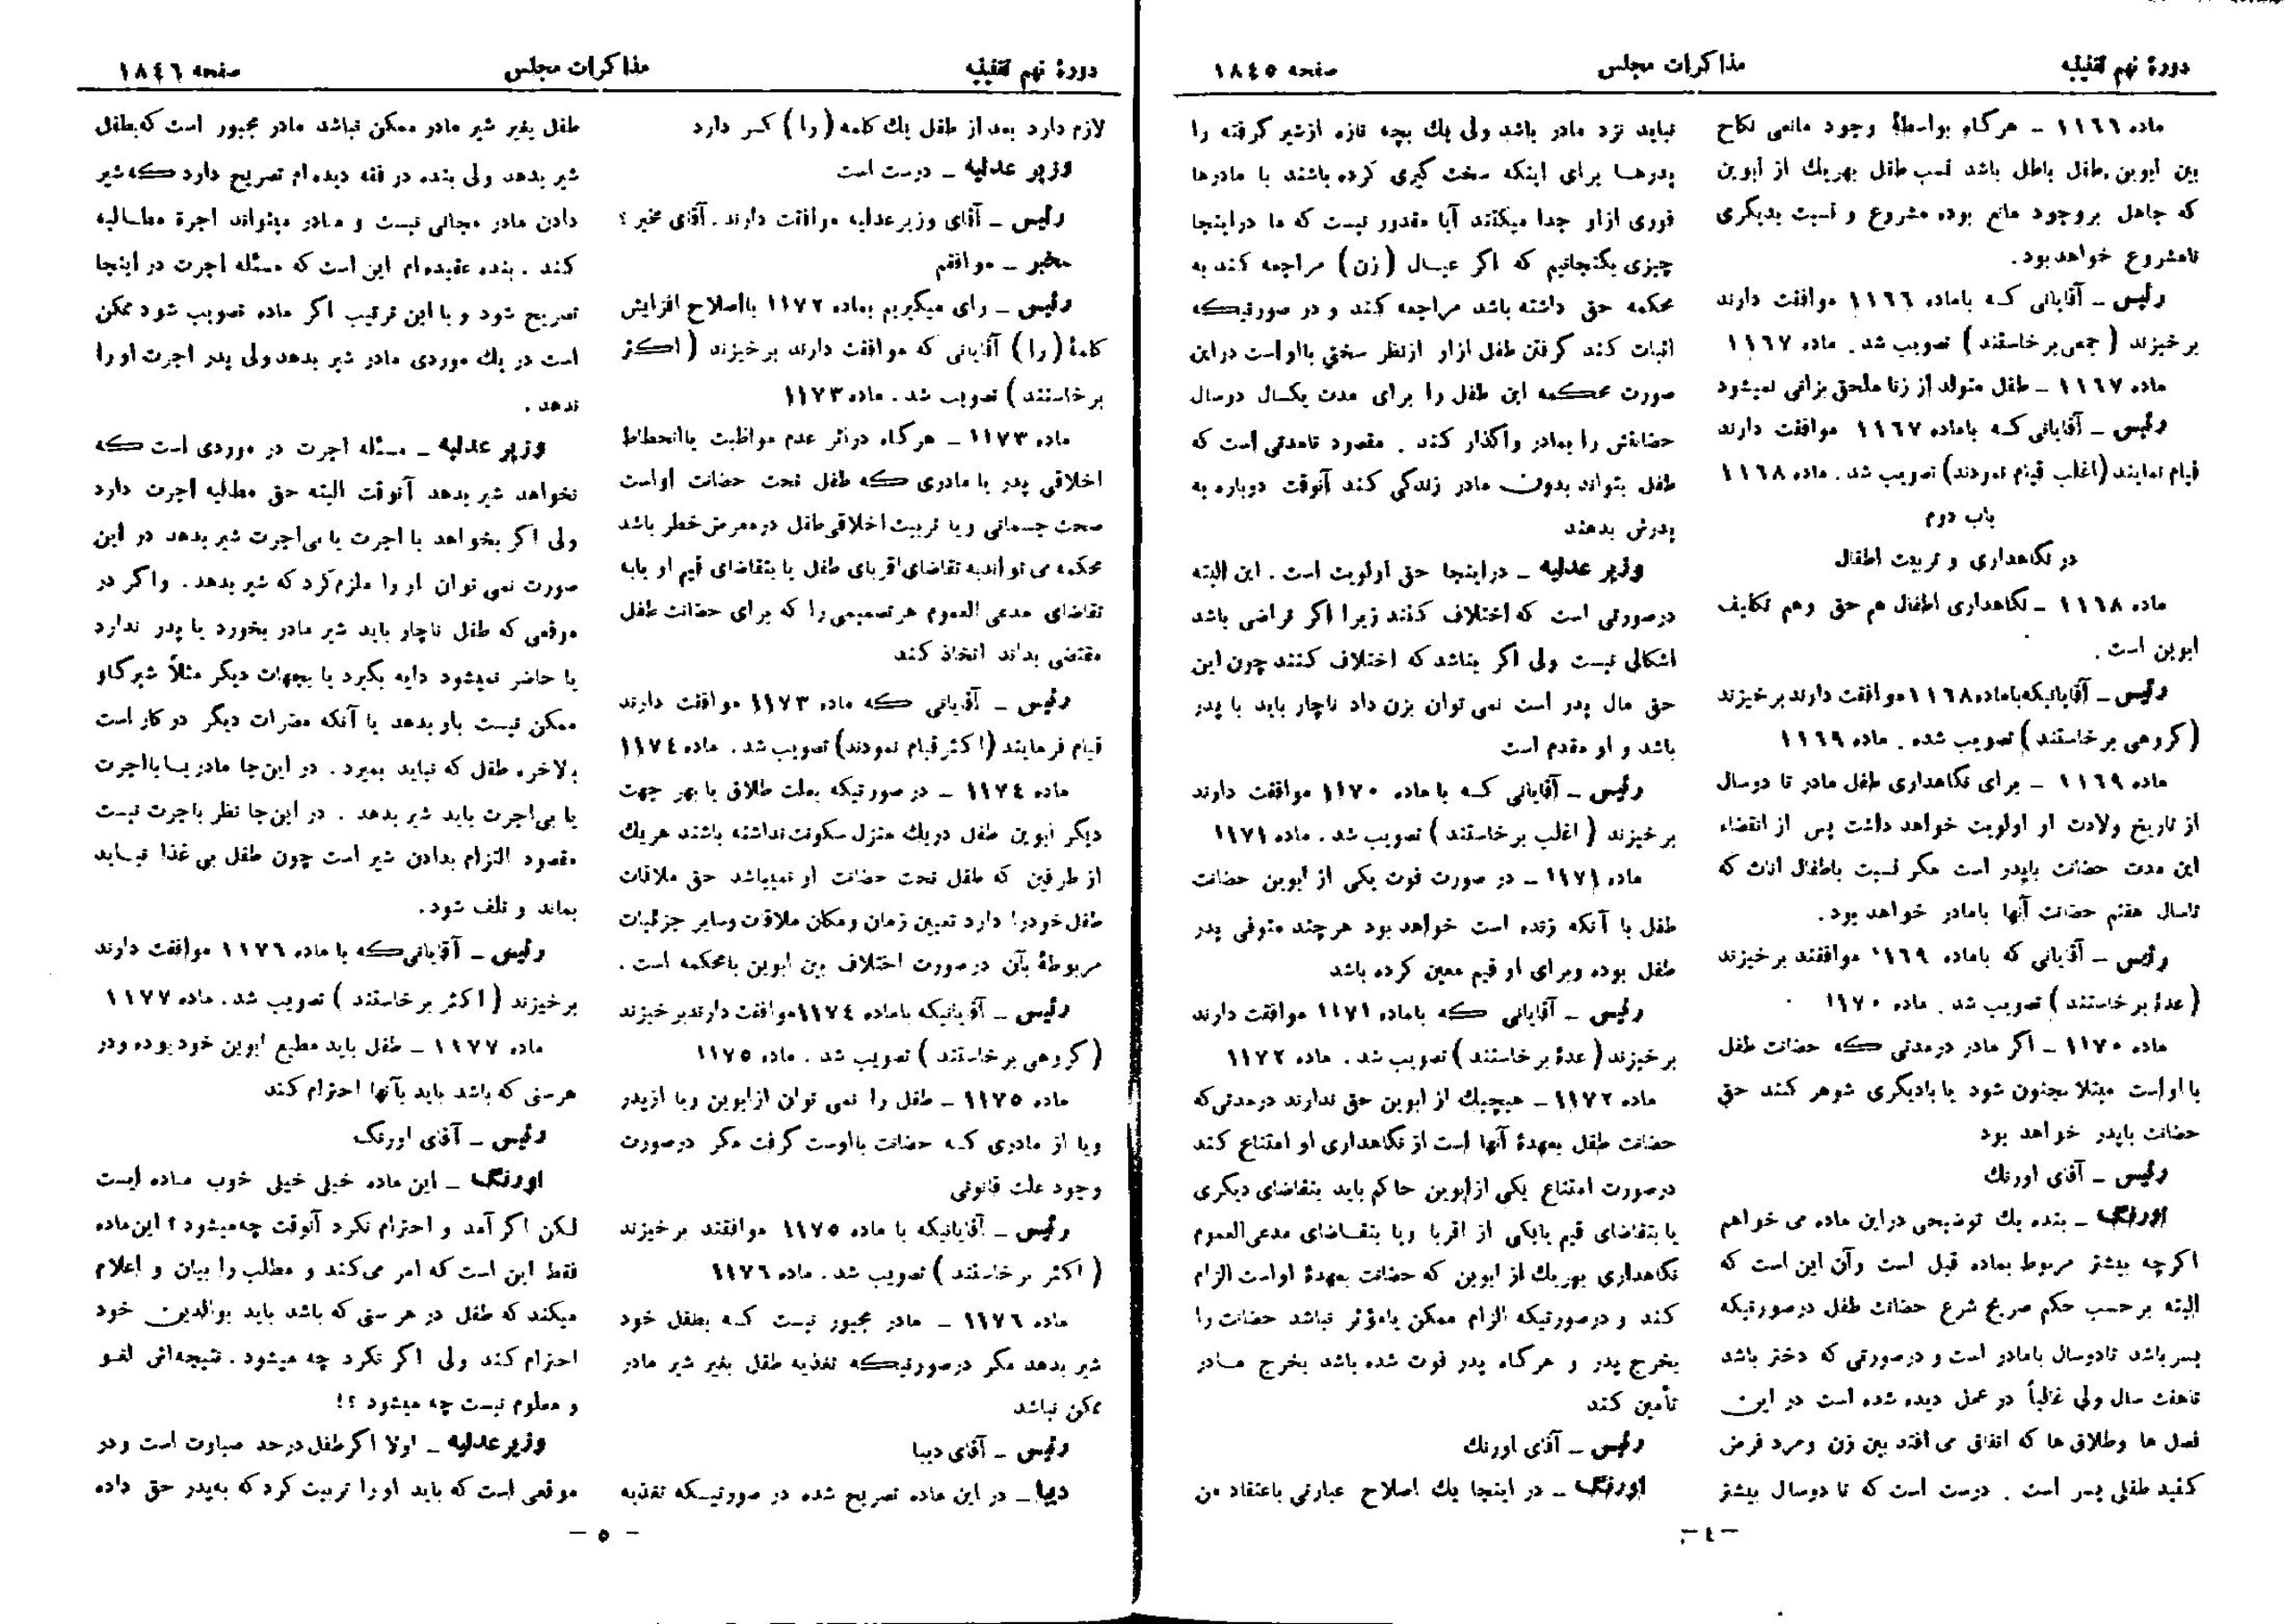 دورهٔ نهم تقنینیه
مذاکرات مجلس
صفحه ۱۸٤٥
ماده ۱۱٦٦ ـ هرگاه بواسطهٔ وجود مانعی نکاح
بین ابوین طفل باطل باشد نسب طفل بهریك از ابوین
که جاهل بر وجود مانع بوده مشروع و نسبت بدیگری
نامشروع خواهد بود.
رئیس ـ آقایانی کـه باماده ۱۱٦٦ موافقت دارند
برخیزند (جمعی برخاستند) تصویب شد. ماده ۱۱٦۷
ماده ۱۱٦۷ ـ طفل متولد از زنا ملحق بزانی نمیشود
رئیس ـ آقایانی کـه باماده ۱۱٦۷ موافقت دارند
قیام نمایند (اغلب قیام نمودند) تصویب شد. ماده ۱۱٦۸
باب دوم
در نگاهداری و تربیت اطفال
ماده ۱۱٦۸ ـ نگاهداری اطفال هم حق وهم تکلیف
ابوین است.
رئیس ـ آقایانیکه باماده ۱۱٦۸ موافقت دارند برخیزند
(گروهی برخاستند) تصویب شده. ماده ۱۱٦۹
ماده ۱۱٦۹ ـ برای نگاهداری طفل مادر تا دوسال
از تاریخ ولادت او اولویت خواهد داشت پس از انقضاء
این مدت حضانت باپدر است مگر نسبت باطفال اناث که
تاسال هفتم حضانت آنها بامادر خواهد بود.
رئیس ـ آقایانی که باماده ۱۱٦۹ موافقند برخیزند
(عدهٔ برخاستند) تصویب شد. ماده ۱۱۷۰
ماده ۱۱۷۰ ـ اگر مادر درمدتی که حضانت طفل
با اواست مبتلا بجنون شود یا بادیگری شوهر کند حق
حضانت باپدر خواهد بود
رئیس ـ آقای اورنك
اورنگ ـ بنده یك توضیحی دراین ماده می خواهم
اگرچه بیشتر مربوط بماده قبل است وآن این است که
البته برحسب حکم صریح شرع حضانت طفل درصورتیکه
پسر باشد تادوسال بامادر است و درصورتی که دختر باشد
تاهفت سال ولی غالباً در عمل دیده شده است در این
فصل ها وطلاق ها که اتفاق می افتد بین زن ومرد فرض
کنید طفلی پسر است . درست است که تا دوسال بیشتر
نباید نزد مادر باشد ولی یك بچه تازه ازشیر گرفته را
پدرهـا برای اینکه سخت گیری کرده باشند با مادرها
فوری ازاو جدا میکنند آیا مقدور نیست که ما دراینجا
چیزی بگنجانیم که اگر عیـال (زن) مراجعه کند به
محکمه حق داشته باشد مراجعه کند و در صورتیکه
اثبات کند گرفتن طفل ازاو ازنظر سختی بااواست دراین
صورت محکمه این طفل را برای مدت یکسال دوسال
حضانتش را بمادر واگذار کند . مقصود تامدتی است که
طفل بتواند بدون مادر زندگی کند آنوقت دوباره به
پدرش بدهند
وزیر عدلیه ـ دراینجا حق اولویت است. این البته
درصورتی است که اختلاف کنند زیرا اگر تراضی باشد
اشکالی نیست ولی اگر بناشد که اختلاف کنند چون این
حق مال پدر است نمی توان بزن داد ناچار باید با پدر
باشد و او مقدم است
رئیس ـ آقایانی کـه با ماده ۱۱۷۰ موافقت دارند
برخیزند (اغلب برخاستند) تصویب شد. ماده ۱۱۷۱
ماده ۱۱۷۱ ـ در صورت فوت یکی از ابوین حضانت
طفل با آنکه زنده است خواهد بود هرچند متوفی پدر
طفل بوده وبرای او قیم معین کرده باشد
رئیس ـ آقایانی که باماده ۱۱۷۱ موافقت دارند
برخیزند (عدهٔ برخاستند) تصویب شد. ماده ۱۱۷۲
ماده ۱۱۷۲ ـ هیچیك از ابوین حق ندارند درمدتی که
حضانت طفل بعهدهٔ آنها است از نگاهداری او امتناع کند
درصورت امتناع یکی ازابوین حاکم باید بتقاضای دیگری
یا بتقاضای قیم یابکی از اقربا ویا بتقـاضای مدعی العموم
نگاهداری بهریك از ابوین که حضانت بعهدهٔ اواست الزام
کند و درصورتیکه الزام ممکن یامؤثر نباشد حضانت را
بخرج پدر و هرگاه پدر فوت شده باشد بخرج مـادر
تأمین کند
رئیس ـ آقای اورنك
اورنگ ـ در اینجا یك اصلاح عبارتی باعتقاد من
ـ ٤ ـ
دورهٔ نهم تقنینیه
مذاکرات مجلس
صفحه ۱۸٤٦
لازم دارد بعد از طفل یك کلمه (را) کسر دارد
وزیر عدلیه ـ درست است
رئیس ـ آقای وزیر عدلیه موافقت دارند. آقای مخبر؟
مخبر ـ موافقم
رئیس ـ رای میگیریم بماده ۱۱۷۲ بااصلاح افزایش
کلمهٔ (را) آقایانی که موافقت دارند برخیزند (اکثر
برخاستند) تصویب شد. ماده ۱۱۷۳
ماده ۱۱۷۳ ـ هرگاه دراثر عدم مواظبت یاانحطاط
اخلاقی پدر یا مادری که طفل تحت حضانت اواست
صحت جسمانی ویا تربیت اخلاقی طفل درمعرض خطر باشد
محکمه می تواندبه تقاضای اقربای طفل یا بتقاضای قیم او یابه
تقاضای مدعی العموم هرتصمیمی را که برای حضانت طفل
مقتضی بداند اتخاذ کند
رئیس ـ آقایانی که ماده ۱۱۷۳ موافقت دارند
قیام فرمایند (اکثر قیام نمودند) تصویب شد. ماده ۱۱۷٤
ماده ۱۱۷٤ ـ درصورتیکه بعلت طلاق یا بهر جهت
دیگر ابوین طفل دریك منزل سکونت نداشته باشند هریك
از طرفین که طفل تحت حضانت او نمیباشد حق ملاقات
طفل خودرا دارد تعیین زمان ومکان ملاقات وسایر جزئیات
مربوطهٔ بآن درصورت اختلاف بین ابوین بامحکمه است.
رئیس ـ آقایانیکه باماده ۱۱۷٤ موافقت دارندبرخیزند
(گروهی برخاستند) تصویب شد. ماده ۱۱۷٥
ماده ۱۱۷٥ ـ طفل را نمی توان ازابوین ویا ازپدر
ویا از مادری کـه حضانت بااوست گرفت مگر درصورت
وجود علت قانونی
رئیس ـ آقایانیکه با ماده ۱۱۷٥ موافقند برخیزند
(اکثر برخاستند) تصویب شد. ماده ۱۱۷٦
ماده ۱۱۷٦ ـ مادر مجبور نیست کـه بطفل خود
شیر بدهد مگر درصورتیکه تغذیه طفل بغیر شیر مادر
ممکن نباشد
رئیس ـ آقای دیبا
دیبا ـ در این ماده تصریح شده در صورتیـکه تغذیه
طفل بغیر شیر مادر ممکن نباشد مادر مجبور است که بطفل
شیر بدهد ولی بنده در فقه دیده ام تصریح دارد که شیر
دادن مادر مجانی نیست و مـادر میتواند اجرة مطـالبه
کند . بنده عقیده ام این است که مسئله اجرت در اینجا
تصریح شود و با این ترتیب اگر ماده تصویب شود ممکن
است در یك موردی مادر شیر بدهد ولی پدر اجرت او را
ندهد .
وزیر عدلیه ـ مسئله اجرت در موردی است که
نخواهد شیر بدهد آنوقت البته حق مطالبه اجرت دارد
ولی اگر بخواهد با اجرت یا بی اجرت شیر بدهد در این
صورت نمی توان او را ملزم کرد که شیر بدهد . واگر در
موقعی که طفل ناچار باید شیر مادر بخورد یا پدر ندارد
یا حاضر نمیشود دایه بگیرد یا بجهات دیگر مثلاً شیرگاو
ممکن نیست باو بدهد یا آنکه مضرات دیگر در کار است
بالاخره طفل که نباید بمیرد . در این جا مادر یـا بااجرت
یا بی اجرت باید شیر بدهد . در این جا نظر باجرت نیست
مقصود التزام بدادن شیر است چون طفل بی غذا نبـاید
بماند و تلف شود.
رئیس ـ آقایانی که با ماده ۱۱۷٦ موافقت دارند
برخیزند (اکثر برخاستند) تصویب شد. ماده ۱۱۷۷
ماده ۱۱۷۷ ـ طفل باید مطیع ابوین خود بوده ودر
هرسنی که باشد باید بآنها احترام کند
رئیس ـ آقای اورنگ
اورنگ ـ این ماده خیلی خیلی خوب مـاده ایست
لکن اگر آمد و احترام نکرد آنوقت چه میشود؟ این ماده
فقط این است که امر می کند و مطلب را بیان و اعلام
میکند که طفل در هر سنی که باشد باید بوالدین خود
احترام کند ولی اگر نکرد چه میشود . نتیجه اش لغـو
و معلوم نیست چه میشود ؟!
وزیر عدلیه ـ اولا اگر طفل درحد صباوت است ودر
موقعی است که باید او را تربیت کرد که به پدر حق داده
ـ ٥ ـ